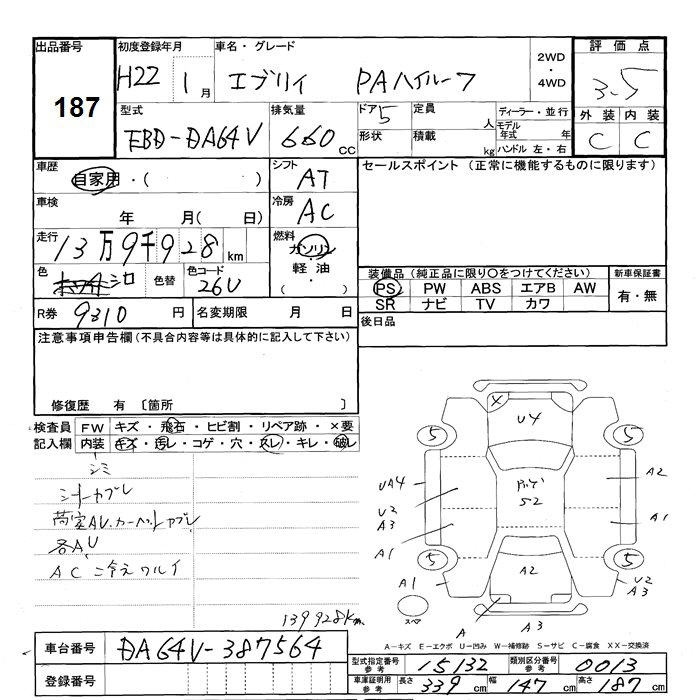 出品番号 187
初度登録年月 H22 1月
車名・グレード エブリイ PAハイルーフ
2WD・4WD
評価点 3.5
型式 EBD-DA64V
排気量 660cc
ドア 5
形状
定員 人
積載 kg
ディーラー・並行
モデル年式 年
ハンドル 左・右
外装 内装
C C
車歴 自家用・( )
シフト AT
セールスポイント (正常に機能するものに限ります)
車検 年 月( 日)
冷房 AC
走行 13万9千928km
燃料 ガソリン・軽油・( )
色 シロ 色替
色コード 26U
装備品 (純正品に限り○をつけてください)
新車保証書
PS PW ABS エアB AW
有・無
SR ナビ TV カワ
R券 9310円
名変期限 月 日
後日品
注意事項申告欄 (不具合内容等は具体的に記入して下さい)
修復歴 有 [箇所 ]
検査員記入欄
FW キズ・飛石・ヒビ割・リペア跡・×要
内装 キズ・汚レ・コゲ・穴・スレ・キレ・破レ
シミ
シートカブレ
荷室AU、カーペットカブレ
各AU
AC 冷えワルイ
139928km
X U4
5 5
UA4 A2
ルーフ S2
U2 A3
A1 A1
5 5
A2
A1 U2 A3
スペア A A3
A-キズ E-エクボ U-凹み W-補修跡 S-サビ C-腐食 XX-交換済
車台番号 DA64V-387564
登録番号
型式指定番号 参考 15132
類別区分番号 参考 0013
車庫証明用 参考 長さ 339cm 幅 147cm 高さ 187cm